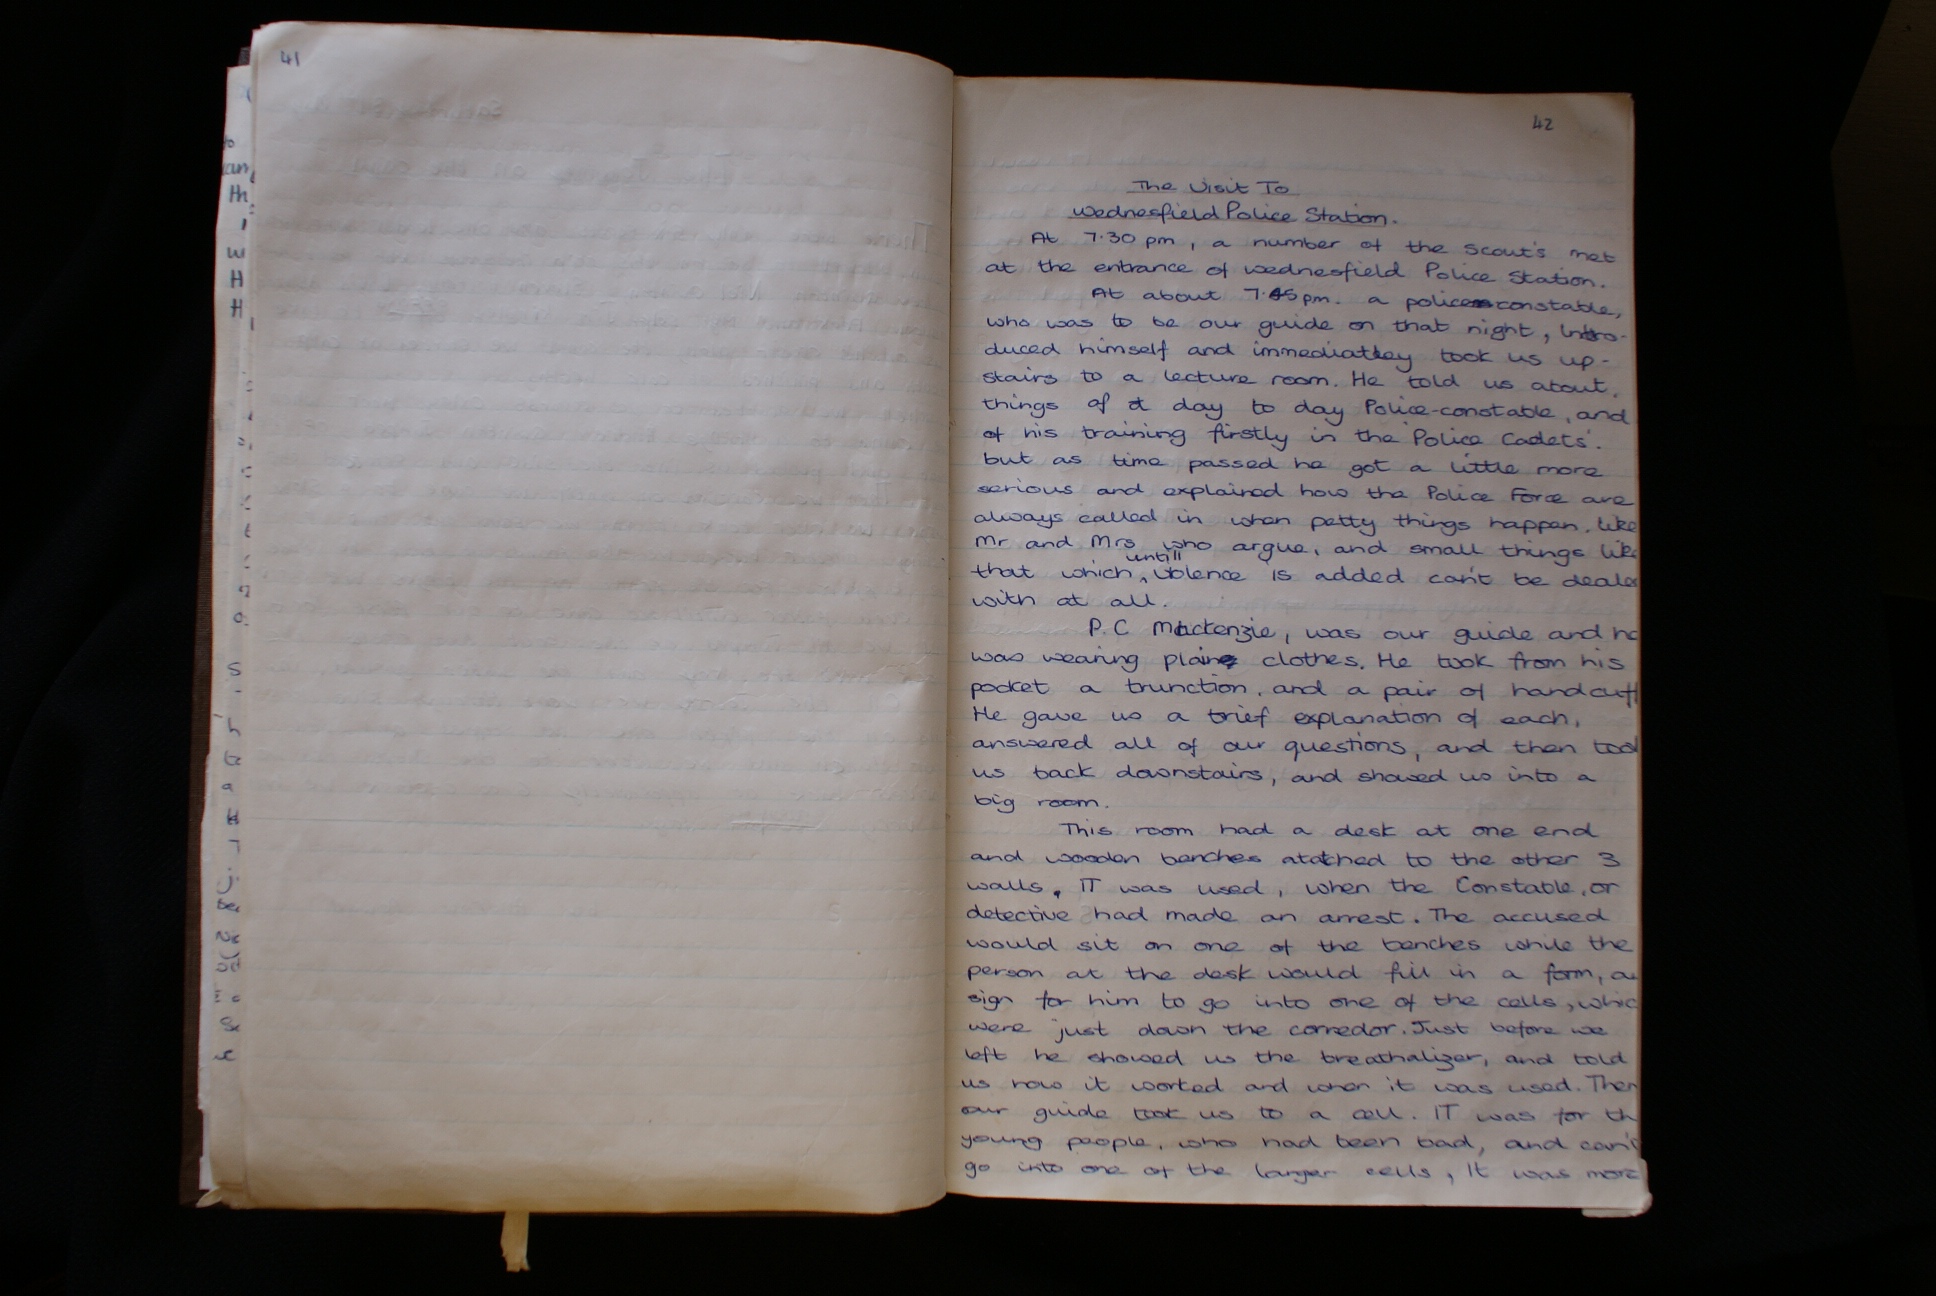 41
42
The Visit To
Wednesfield Police Station.
At 7.30 pm, a number of the Scout's met
at the entrance of Wednesfield Police Station.
At about 7.45pm. a police constable,
who was to be our guide on that night, Intro-
duced himself and immediatley took us up-
stairs to a lecture room. He told us about.
things of a day to day Police-constable, and
of his training firstly in the 'Police Cadets'.
but as time passed he got a little more
serious and explained how the Police Force are
always called in when petty things happen. like
Mr and Mrs who argue, and small things like
untill
that which, violence is added can't be deale
with at all.
P.C Mackenzie, was our guide and he
was wearing plain clothes. He took from his
pocket a trunction, and a pair of handcuff
He gave us a brief explanation of each,
answered all of our questions, and then took
us back downstairs, and showed us into a
big room.
This room had a desk at one end
and wooden benches atatched to the other 3
walls. IT was used, when the Constable, or
detective had made an arrest. The accused
would sit on one of the benches while the
person at the desk would fill in a form, a
sign for him to go into one of the cells, whic
were just down the corredor. Just before we
left he showed us the breathalizer, and told
us how it worked and when it was used. Then
our guide took us to a cell. IT was for th
young people, who had been bad, and can't
go into one of the larger cells, It was more